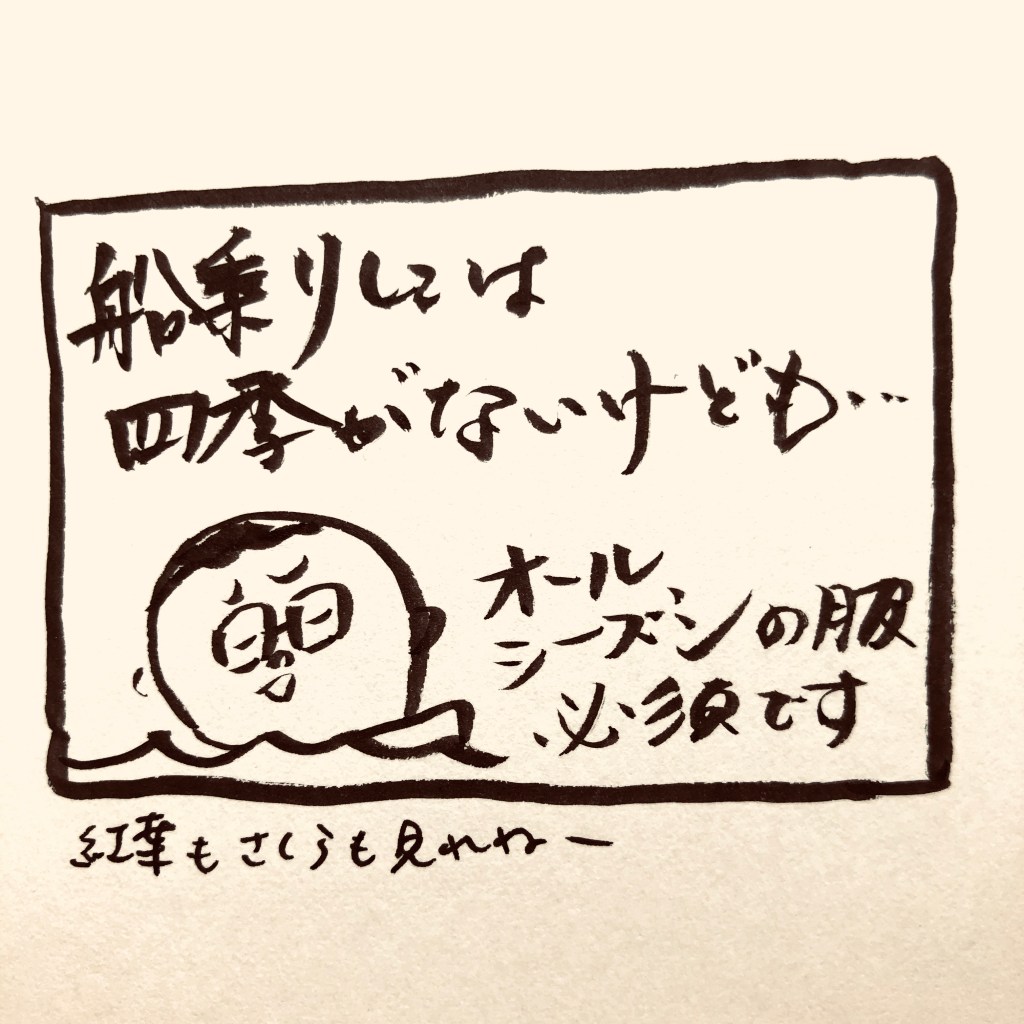 船乗りしては
四季がないけども…
オール
シーズンの服
必須です
紅葉もさくらも見れねー